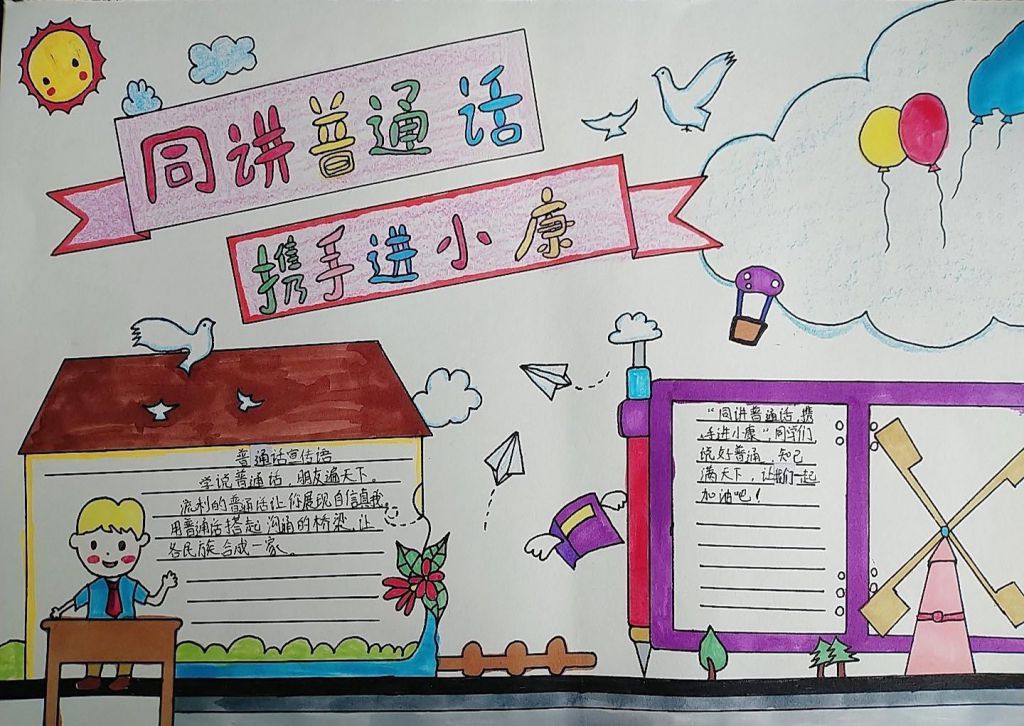 同讲普通话
携手进小康
普通话宣传语
学说普通话，朋友遍天下。
流利的普通话让你展现自信真我
用普通话搭起沟通的桥梁，让
各民族合成一家。
“同讲普通话，携
手进小康”，同学们
说好普通，知己
满天下，让我们一起
加油吧！